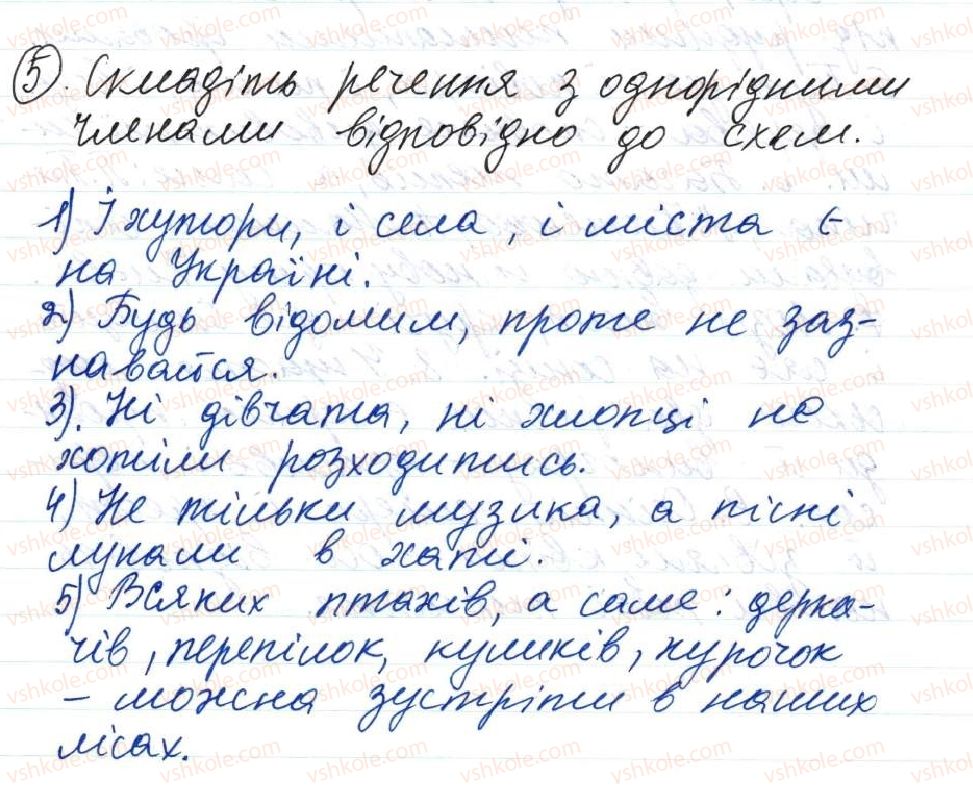 5. Складіть речення з однорідними
членами відповідно до схем.
1) І хутори, і села, і міста є
на Україні.
2) Будь відомим, проте не заз-
навайся.
3). Ні дівчата, ні хлопці не
хотіли розходитись.
4) Не тільки музика, а пісні
лунали в хаті.
5) Всяких птахів, а саме: дерка-
чів, перепілок, куликів, курочок
– можна зустріти в наших
лісах.